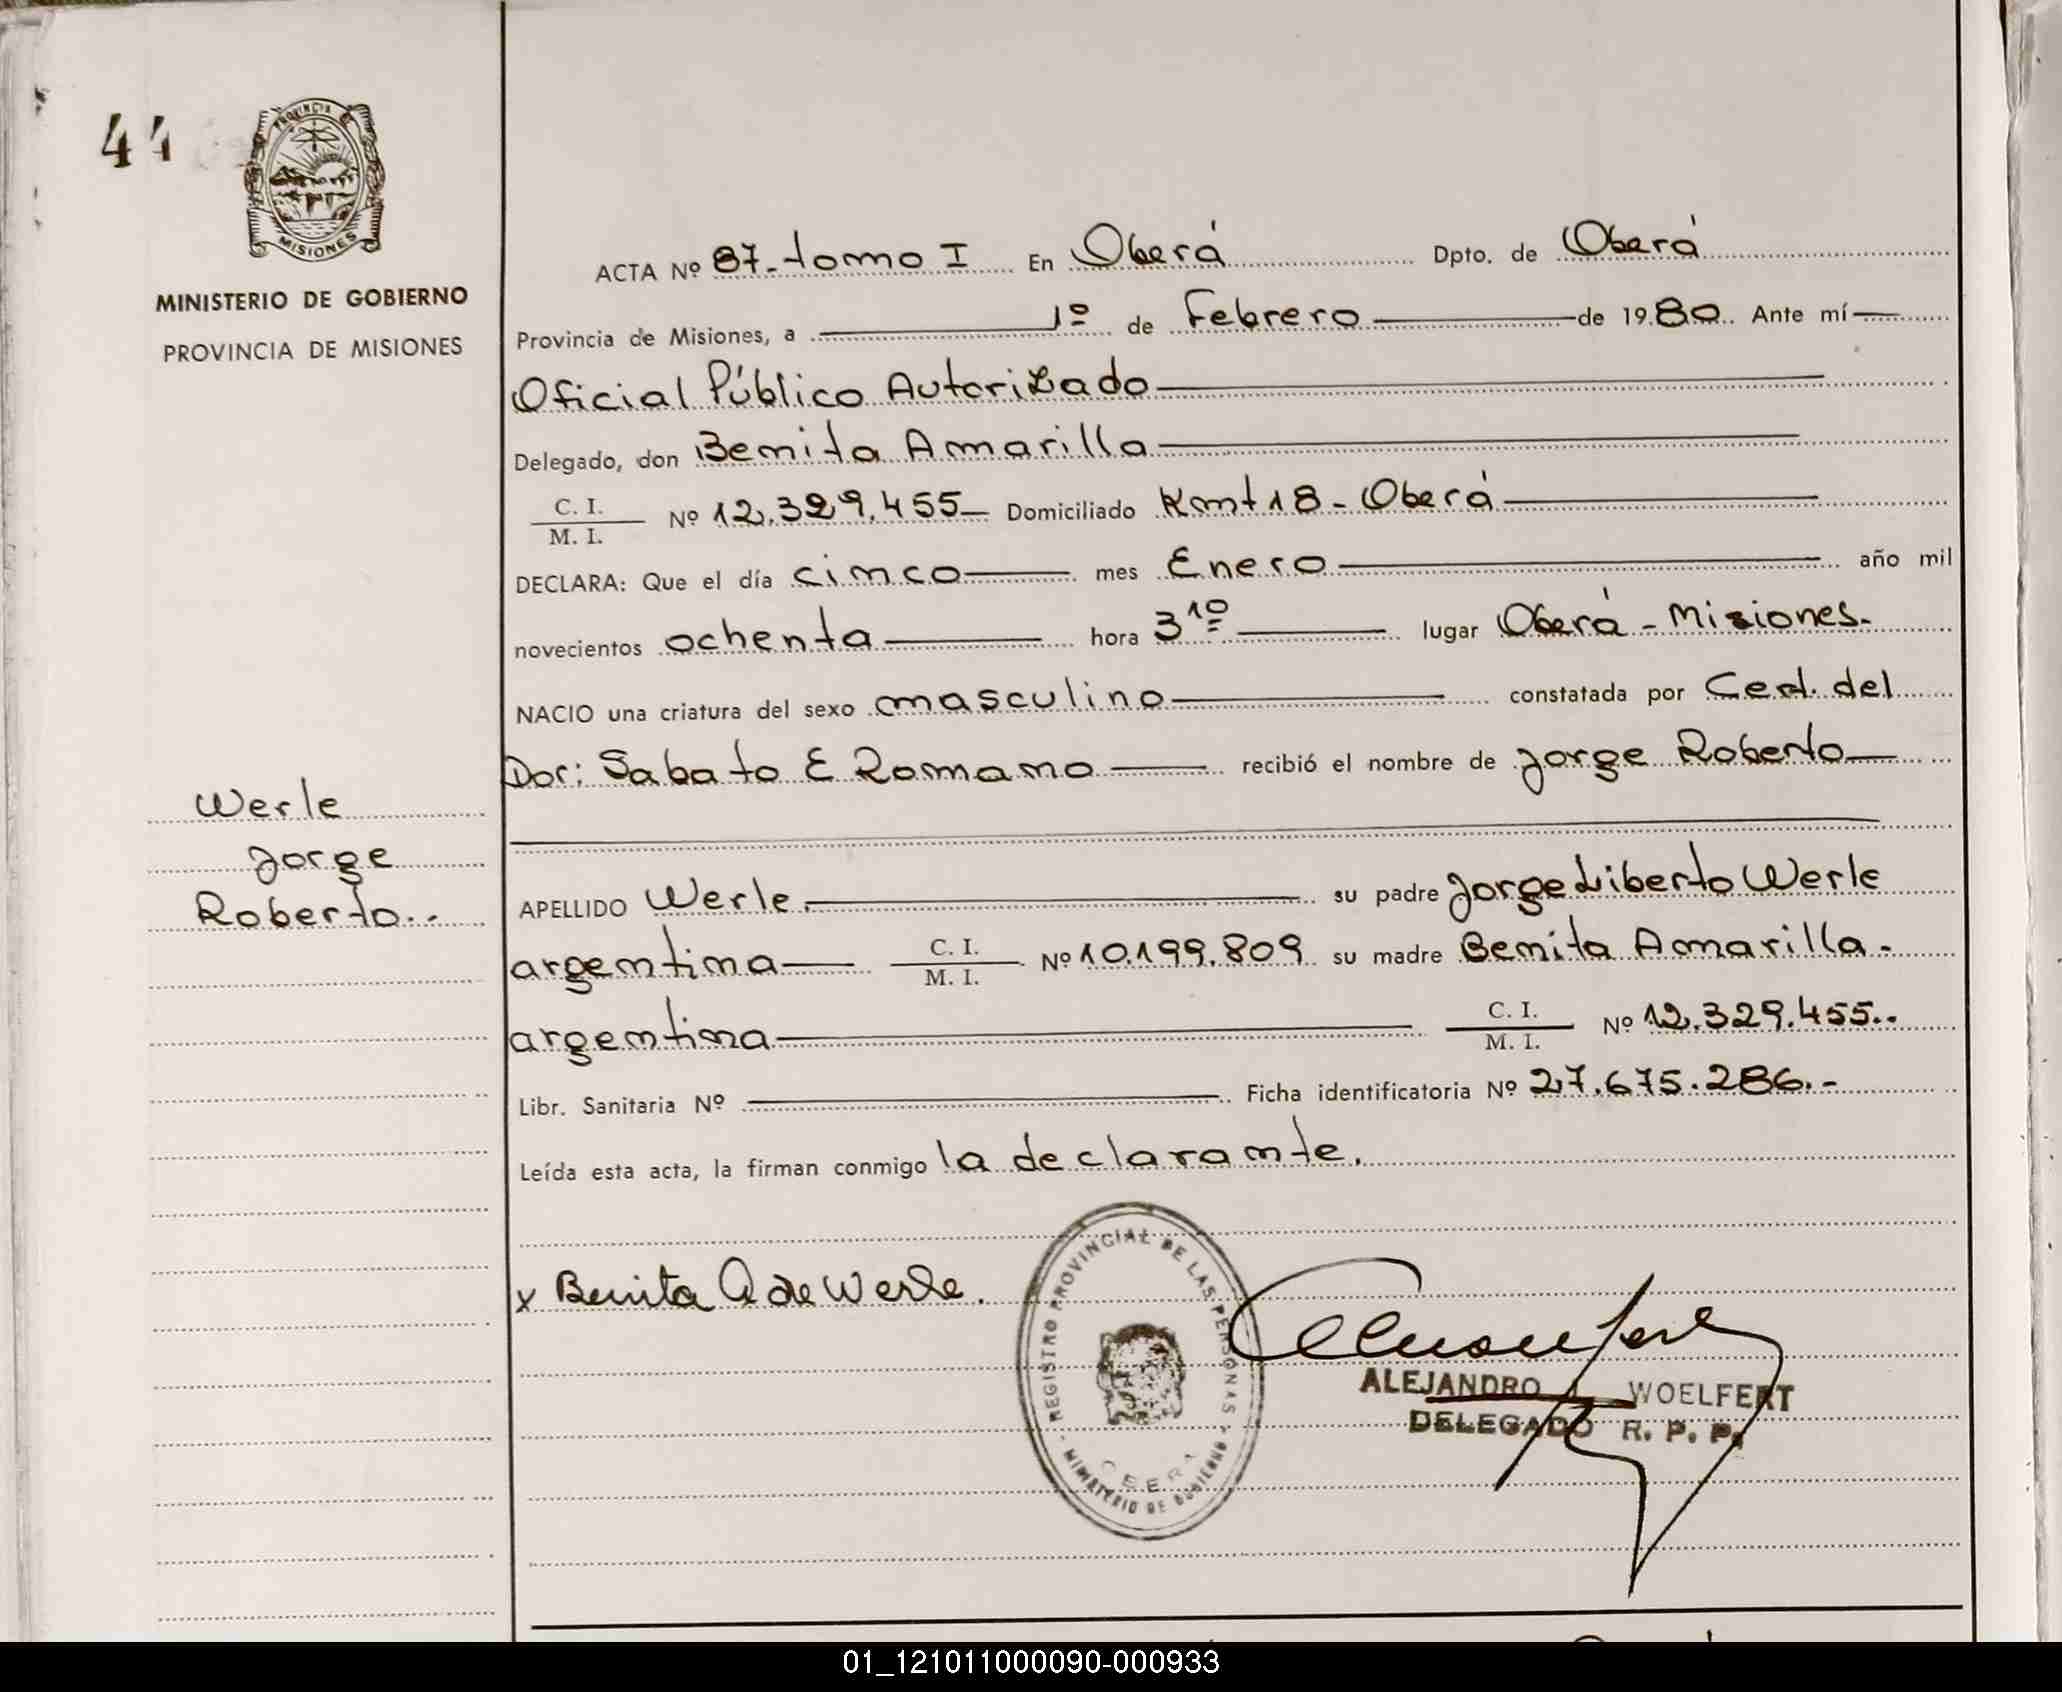 44
PROVINCIA
MISIONES
MINISTERIO DE GOBIERNO
PROVINCIA DE MISIONES
ACTA Nº 87 - tomo I En Oberá Dpto. de Oberá
Provincia de Misiones, a 1º de Febrero de 1980 Ante mí
Oficial Público Autorizado
Delegado, don Benita Amarilla
C. I. / M. I. Nº 12.329.455 Domiciliado Kmt 18 - Oberá
DECLARA: Que el día cinco mes Enero año mil
novecientos ochenta hora 3 10 lugar Oberá - Misiones.
NACIO una criatura del sexo masculino constatada por Cert. del
Doc: Sabato E Romano recibió el nombre de Jorge Roberto
Werle
Jorge
Roberto..
APELLIDO Werle. su padre Jorge Liberto Werle
argentina C. I. / M. I. Nº 10.199.809 su madre Benita Amarilla.
argentina C. I. / M. I. Nº 12.329.455..
Libr. Sanitaria Nº Ficha identificatoria Nº 27.675.286.-
Leída esta acta, la firman conmigo la declarante.
x Benita A de Werle.
REGISTRO PROVINCIAL DE LAS PERSONAS
OBERA
MINISTERIO DE GOBIERNO
ALEJANDRO WOELFERT
DELEGADO R. P. P.
01_121011000090-000933